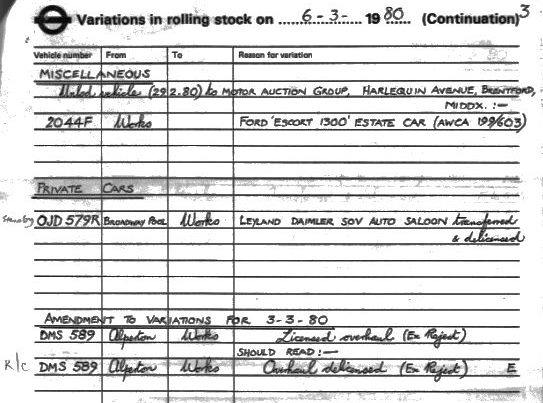 Variations in rolling stock on 6-3- 1980 (Continuation) 3
Vehicle number From To Reason for variation
MISCELLANEOUS
Unlxd vehicle (29.2.80) to MOTOR AUCTION GROUP, HARLEQUIN AVENUE, BRENTFORD,
MIDDX. :—
2044F Works FORD 'ESCORT 1300' ESTATE CAR (AWCA 199/603)
PRIVATE CARS
Standby OJD 579R BROADWAY POOL Works LEYLAND DAIMLER SOV AUTO SALOON transferred
& delicensed
AMENDMENT TO VARIATIONS FOR 3-3-80
DMS 589 Alperton Works Licensed overhaul (Ex Reject)
SHOULD READ :—
R/c DMS 589 Alperton Works Overhaul delicensed (Ex Reject) E